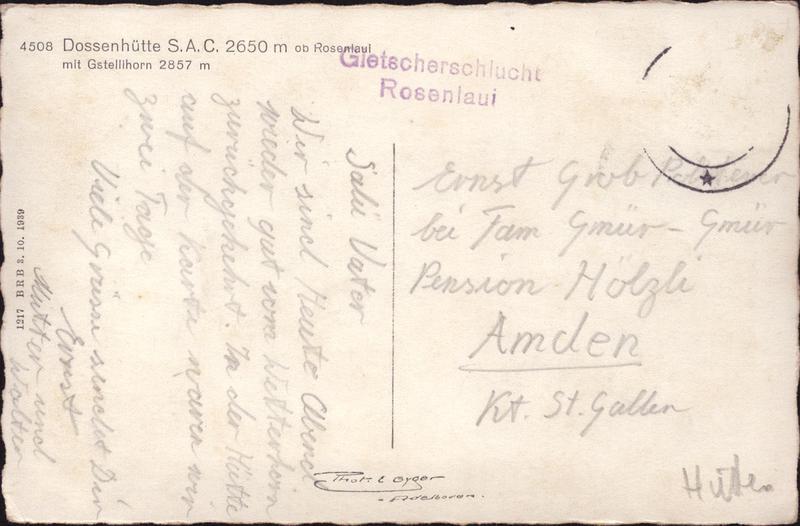 4508 Dossenhütte S.A.C. 2650 m ob Rosenlaui
mit Gstellihorn 2857 m
Gletscherschlucht
Rosenlaui
Salü Vater
Wir sind Heute Abend
wieder gut vom Wetterhorn
zurückgekehrt. In der Hütte
auf der Karte waren wir
zwei Tage
Viele Grüsse sendet Dir
Ernst
Mutter und
Walter
1217 BRB 3. 10. 1939
Ernst Grob
bei Fam Gmür - Gmür
Pension Hölzli
Amden
Kt. St. Gallen
Phot. E Gyger
Adelboden.
Hütten